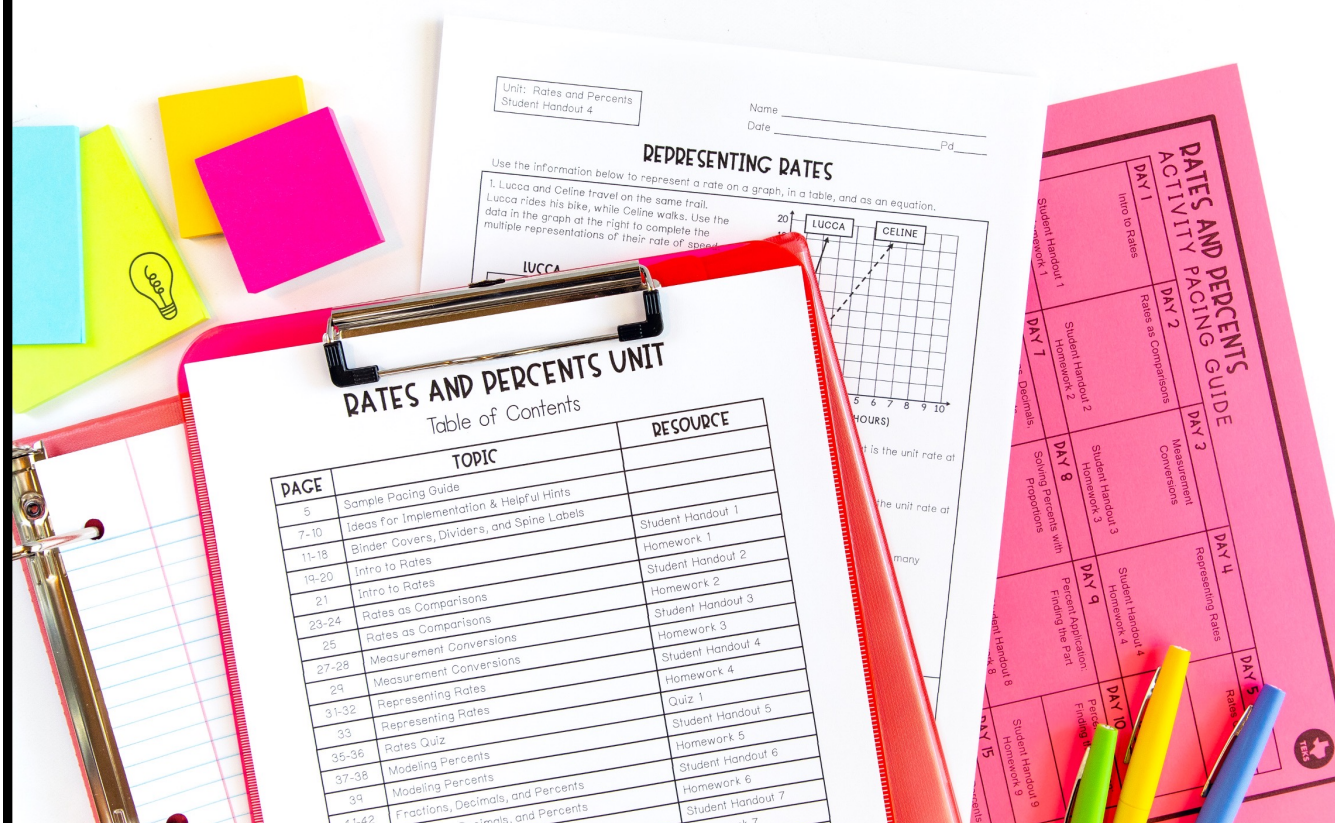 Unit: Rates and Percents
Student Handout 4
Name
Date
Pd
REPRESENTING RATES
Use the information below to represent a rate on a graph, in a table, and as an equation.
1. Lucca and Celine travel on the same trail.
Lucca rides his bike, while Celine walks. Use the
data in the graph at the right to complete the
multiple representations of their rate of speed
LUCCA
20
LUCCA
CELINE
5 6 7 8 9 10
HOURS)
is the unit rate at
the unit rate at
many
RATES AND PERCENTS UNIT
Table of Contents
PAGE TOPIC RESOURCE
5 Sample Pacing Guide
7-10 Ideas for Implementation & Helpful Hints
11-18 Binder Covers, Dividers, and Spine Labels
19-20 Intro to Rates Student Handout 1
21 Intro to Rates Homework 1
23-24 Rates as Comparisons Student Handout 2
25 Rates as Comparisons Homework 2
27-28 Measurement Conversions Student Handout 3
29 Measurement Conversions Homework 3
31-32 Representing Rates Student Handout 4
33 Representing Rates Homework 4
35-36 Rates Quiz Quiz 1
37-38 Modeling Percents Student Handout 5
39 Modeling Percents Homework 5
41-42 Fractions, Decimals, and Percents Student Handout 6
and Percents Homework 6
Student Handout 7
RATES AND PERCENTS
ACTIVITY PACING GUIDE
DAY 1
Intro to Rates
Student Handout 1
Homework 1
DAY 2
Rates as Comparisons
Student Handout 2
Homework 2
DAY 3
Measurement
Conversions
Student Handout 3
Homework 3
DAY 4
Representing Rates
Student Handout 4
Homework 4
DAY 5
Rates
DAY 7
Decimals,
DAY 8
Solving Percents with
Proportions
Handout 8
DAY 9
Percent Application:
Finding the Part
Student Handout 9
Homework 9
DAY 10
Finding
DAY 15
TEKS